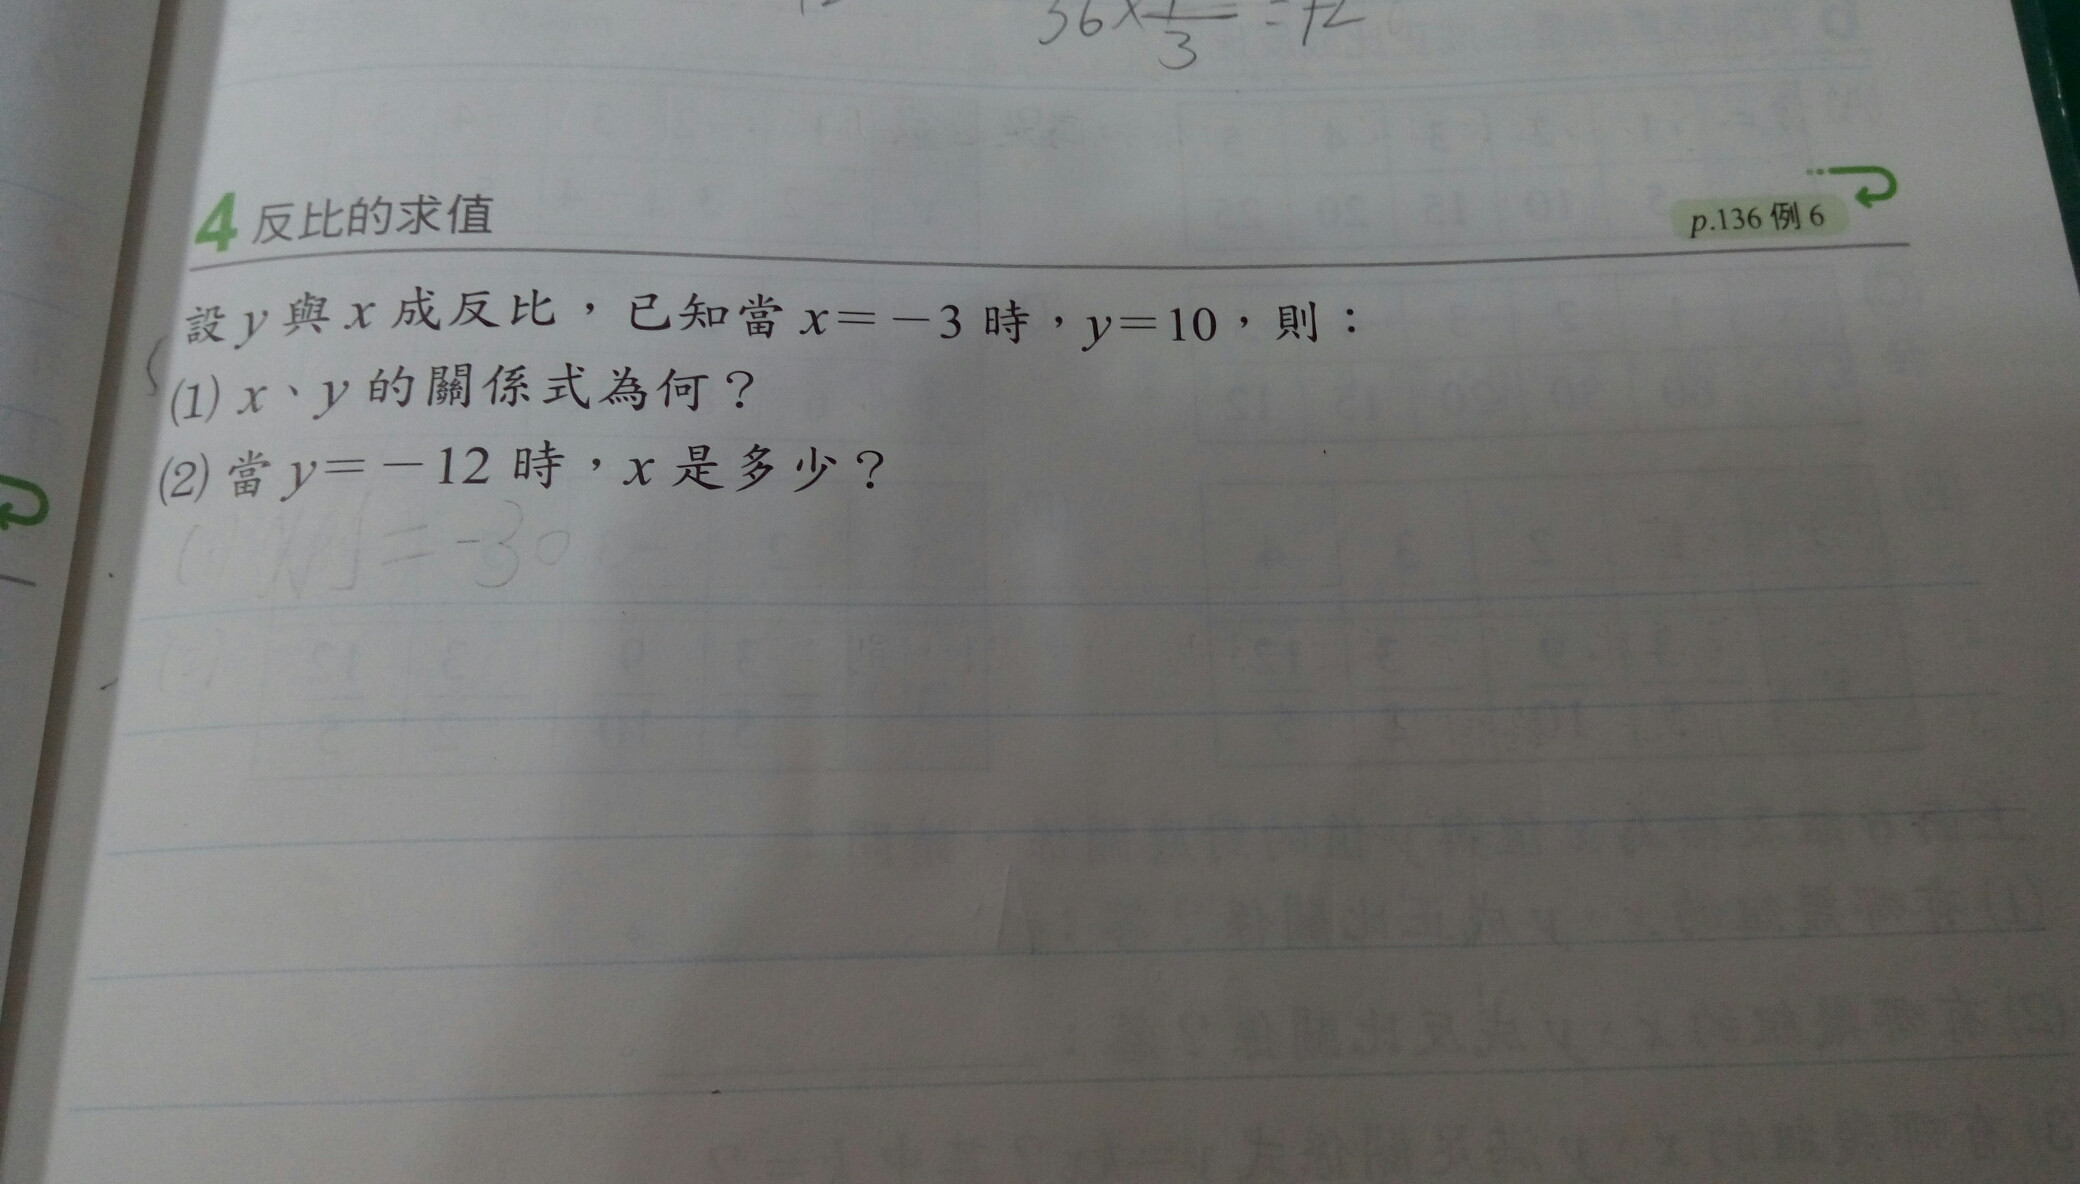 36×1/3=12
4 反比的求值
p.136 例 6
設 y 與 x 成反比，已知當 x＝－3 時，y＝10，則：
(1) x、y 的關係式為何？
(2) 當 y＝－12 時，x 是多少？
=-30